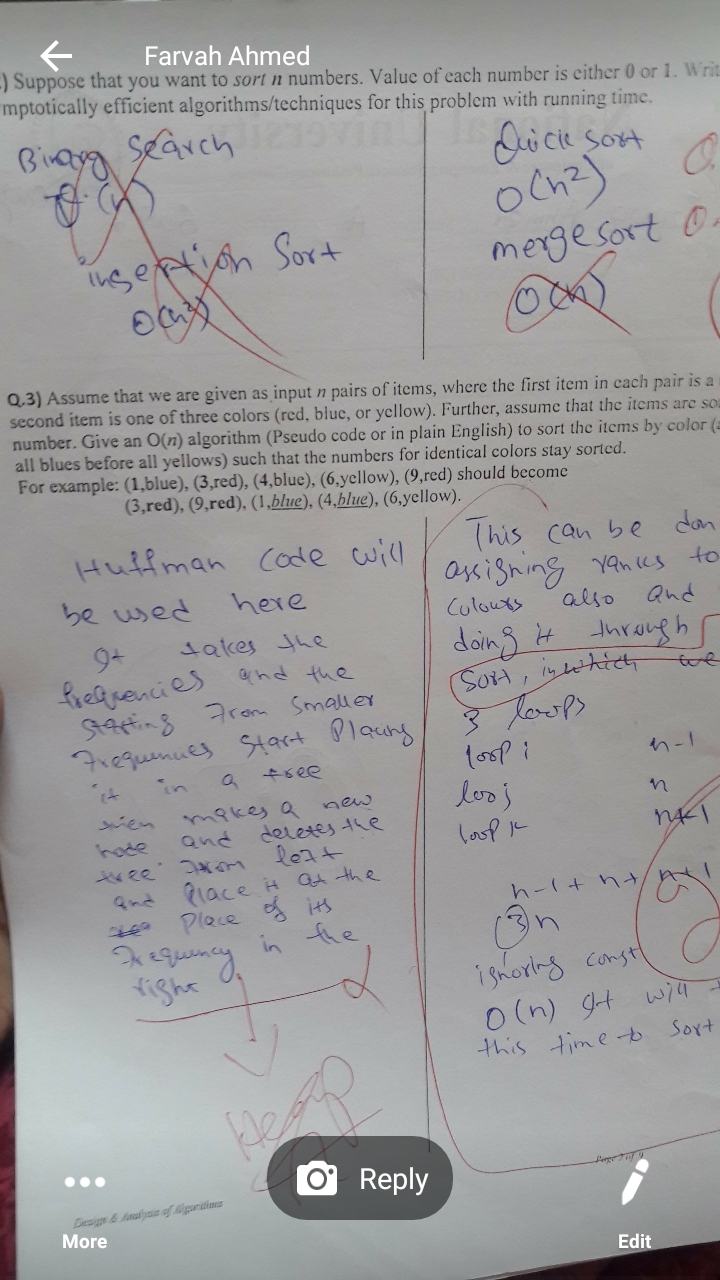 Farvah Ahmed
) Suppose that you want to sort n numbers. Value of each number is either 0 or 1. Writ
mptotically efficient algorithms/techniques for this problem with running time.
Binary Search
(n)
insertion Sort
O(n²)
Quick sort
O(n²)
merge sort
O(n)
Q.3) Assume that we are given as input n pairs of items, where the first item in each pair is a
second item is one of three colors (red, blue, or yellow). Further, assume that the items are so
number. Give an O(n) algorithm (Pseudo code or in plain English) to sort the items by color (a
all blues before all yellows) such that the numbers for identical colors stay sorted.
For example: (1,blue), (3,red), (4,blue), (6,yellow), (9,red) should become
(3,red), (9,red), (1,blue), (4,blue), (6,yellow).
Huffman code will
be used here
It takes the
frequencies and the
starting from smaller
frequencies start placing
it in a tree
makes a new
node and deletes the
tree from left
and place it at the
place of its
frequency in the
right
This can be don
assigning ranks to
colours also and
doing it through
sort, in which we
3 loops
loop i n-1
j n
loop k n+1
n-1+n+n+1
3n
ignoring const
O(n) It will t
this time to sort
Heap
Reply
Page 7 of 9
Design & Analysis of Algorithms
More
Edit